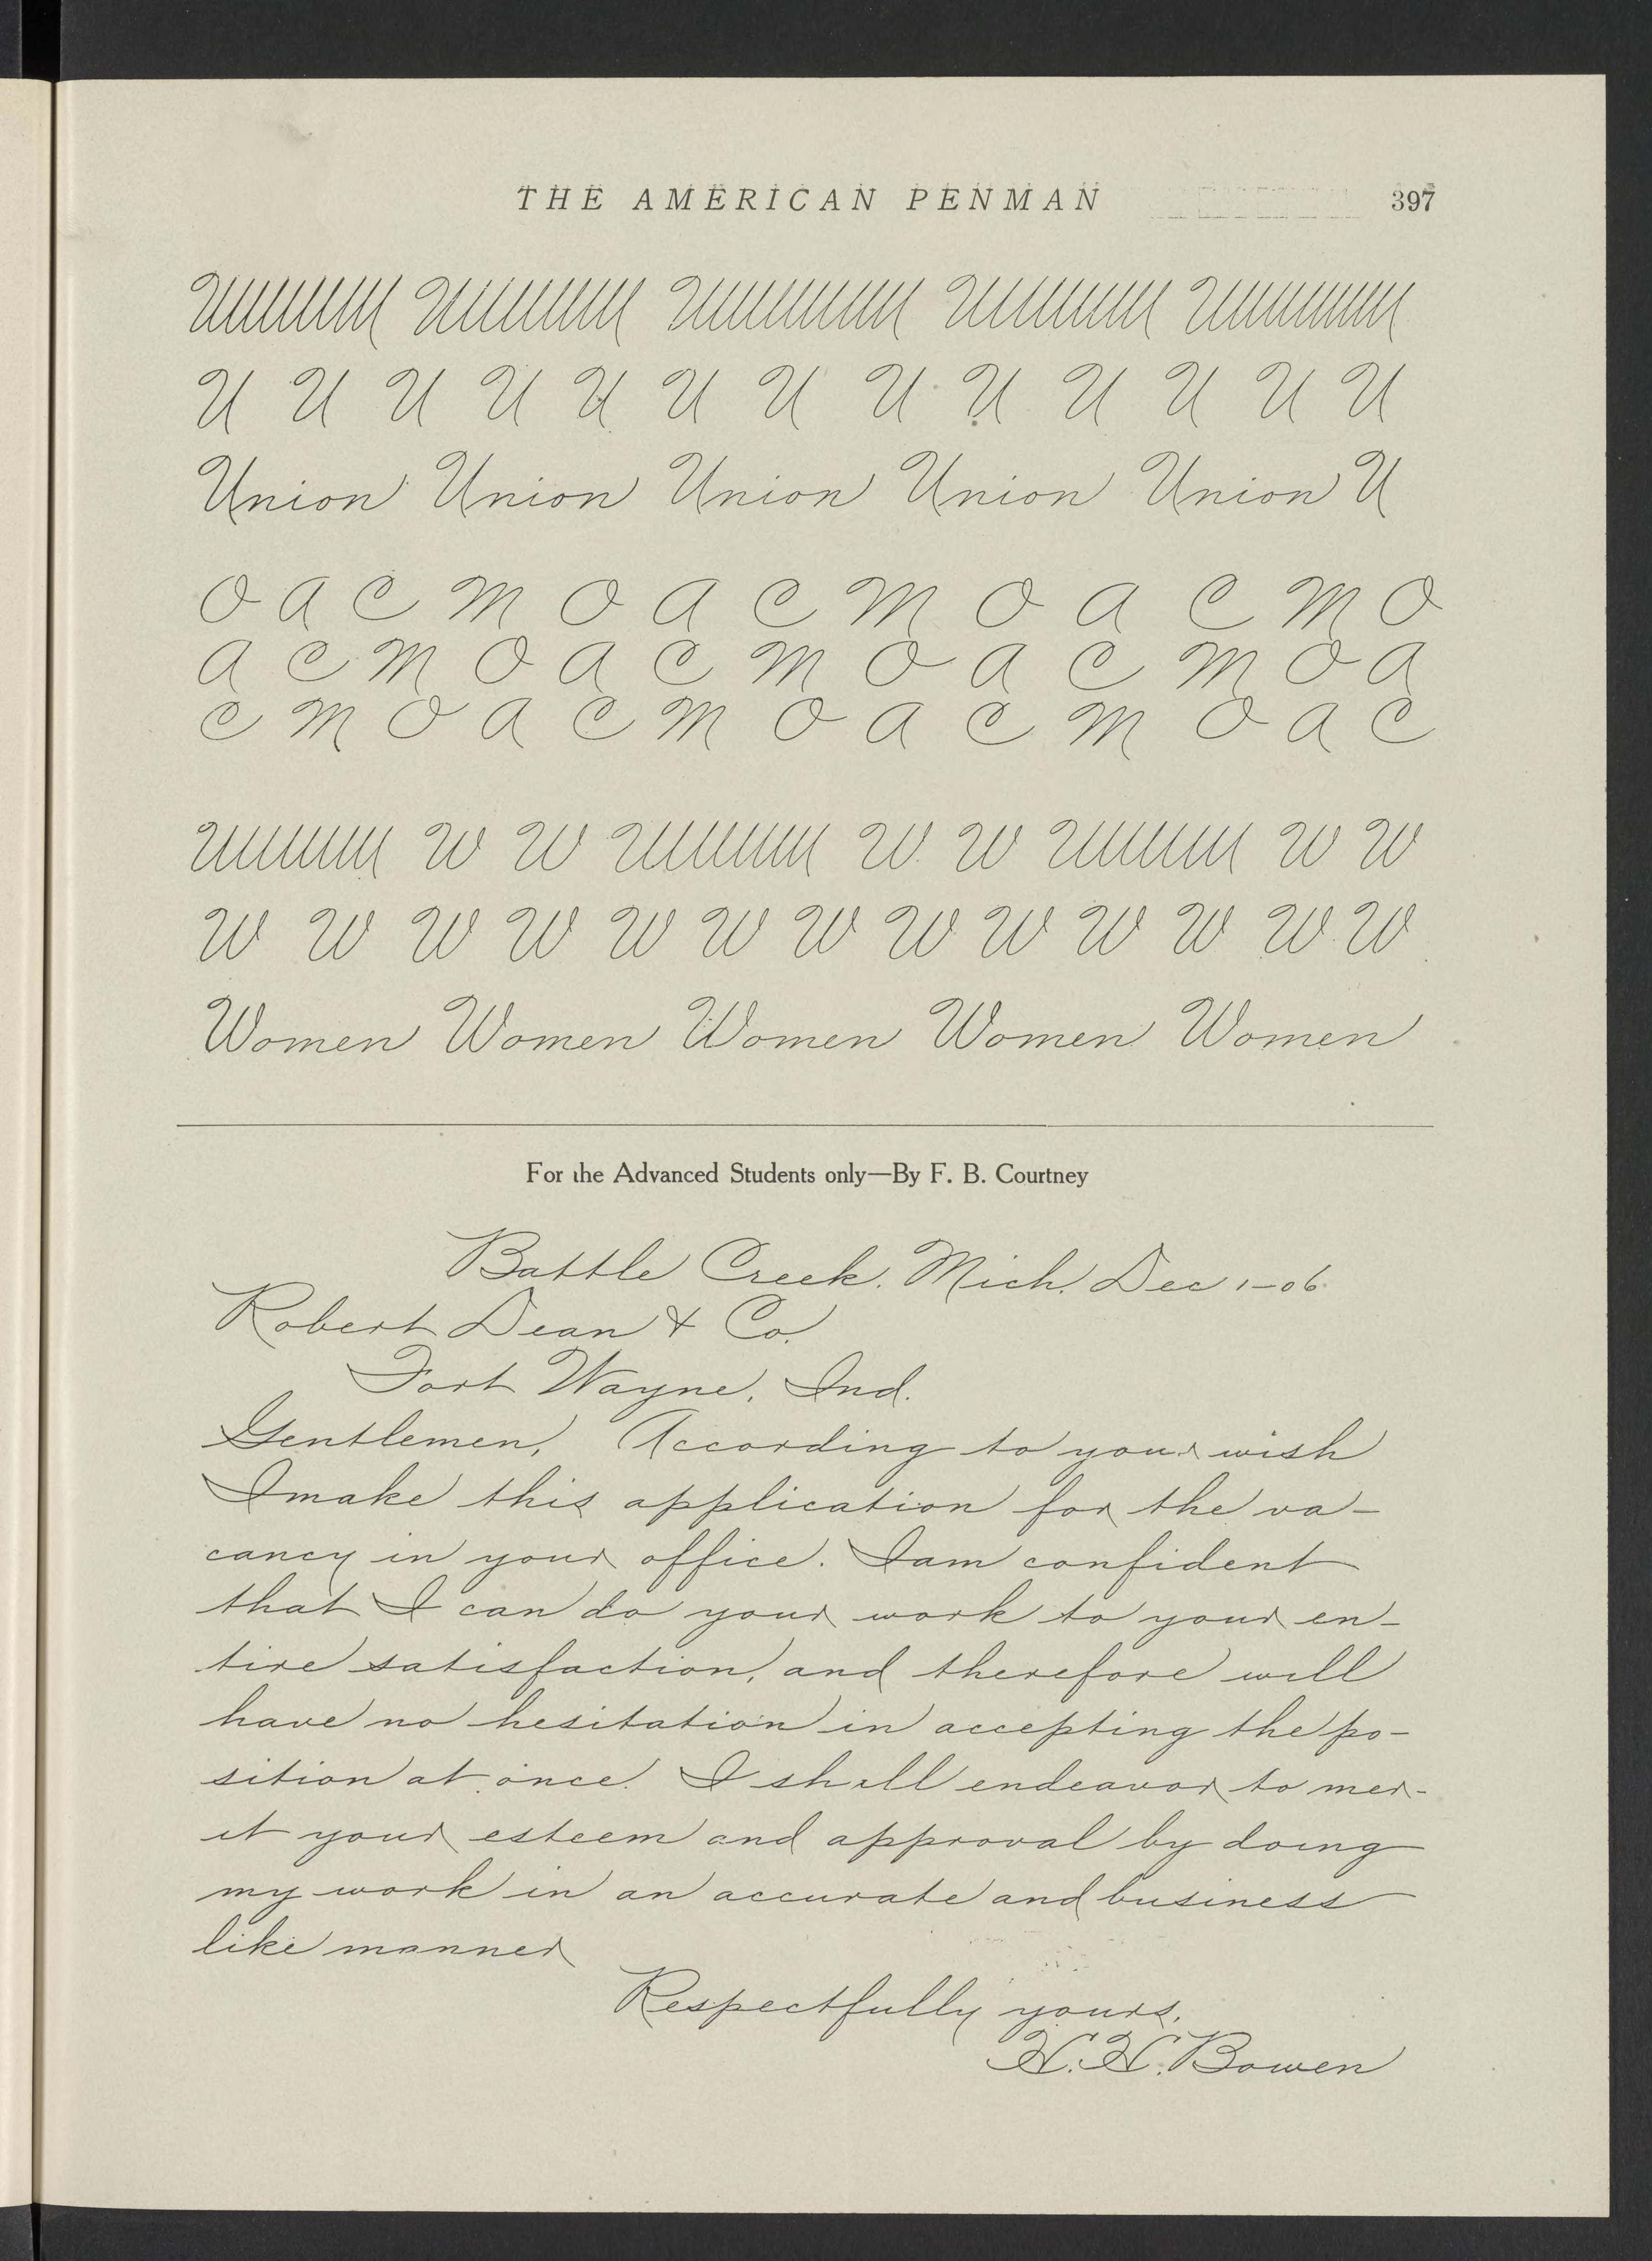 THE AMERICAN PENMAN 397
U U U U U U U U U U U U U
Union Union Union Union Union U
O A C M O A C M O A C M O
A C M O A C M O A C M O A
C M O A C M O A C M O A C
W W W W W W
W W W W W W W W W W W W W
Women Women Women Women Women
For the Advanced Students only—By F. B. Courtney
Battle Creek. Mich. Dec 1-06.
Robert Dean & Co.
Fort Wayne, Ind.
Gentlemen, According to your wish
I make this application for the va-
cancy in your office. I am confident
that I can do your work to your en-
tire satisfaction, and therefore will
have no hesitation in accepting the po-
sition at once. I shall endeavor to mer-
it your esteem and approval by doing
my work in an accurate and business
like manner
Respectfully yours,
H. H. Bowen